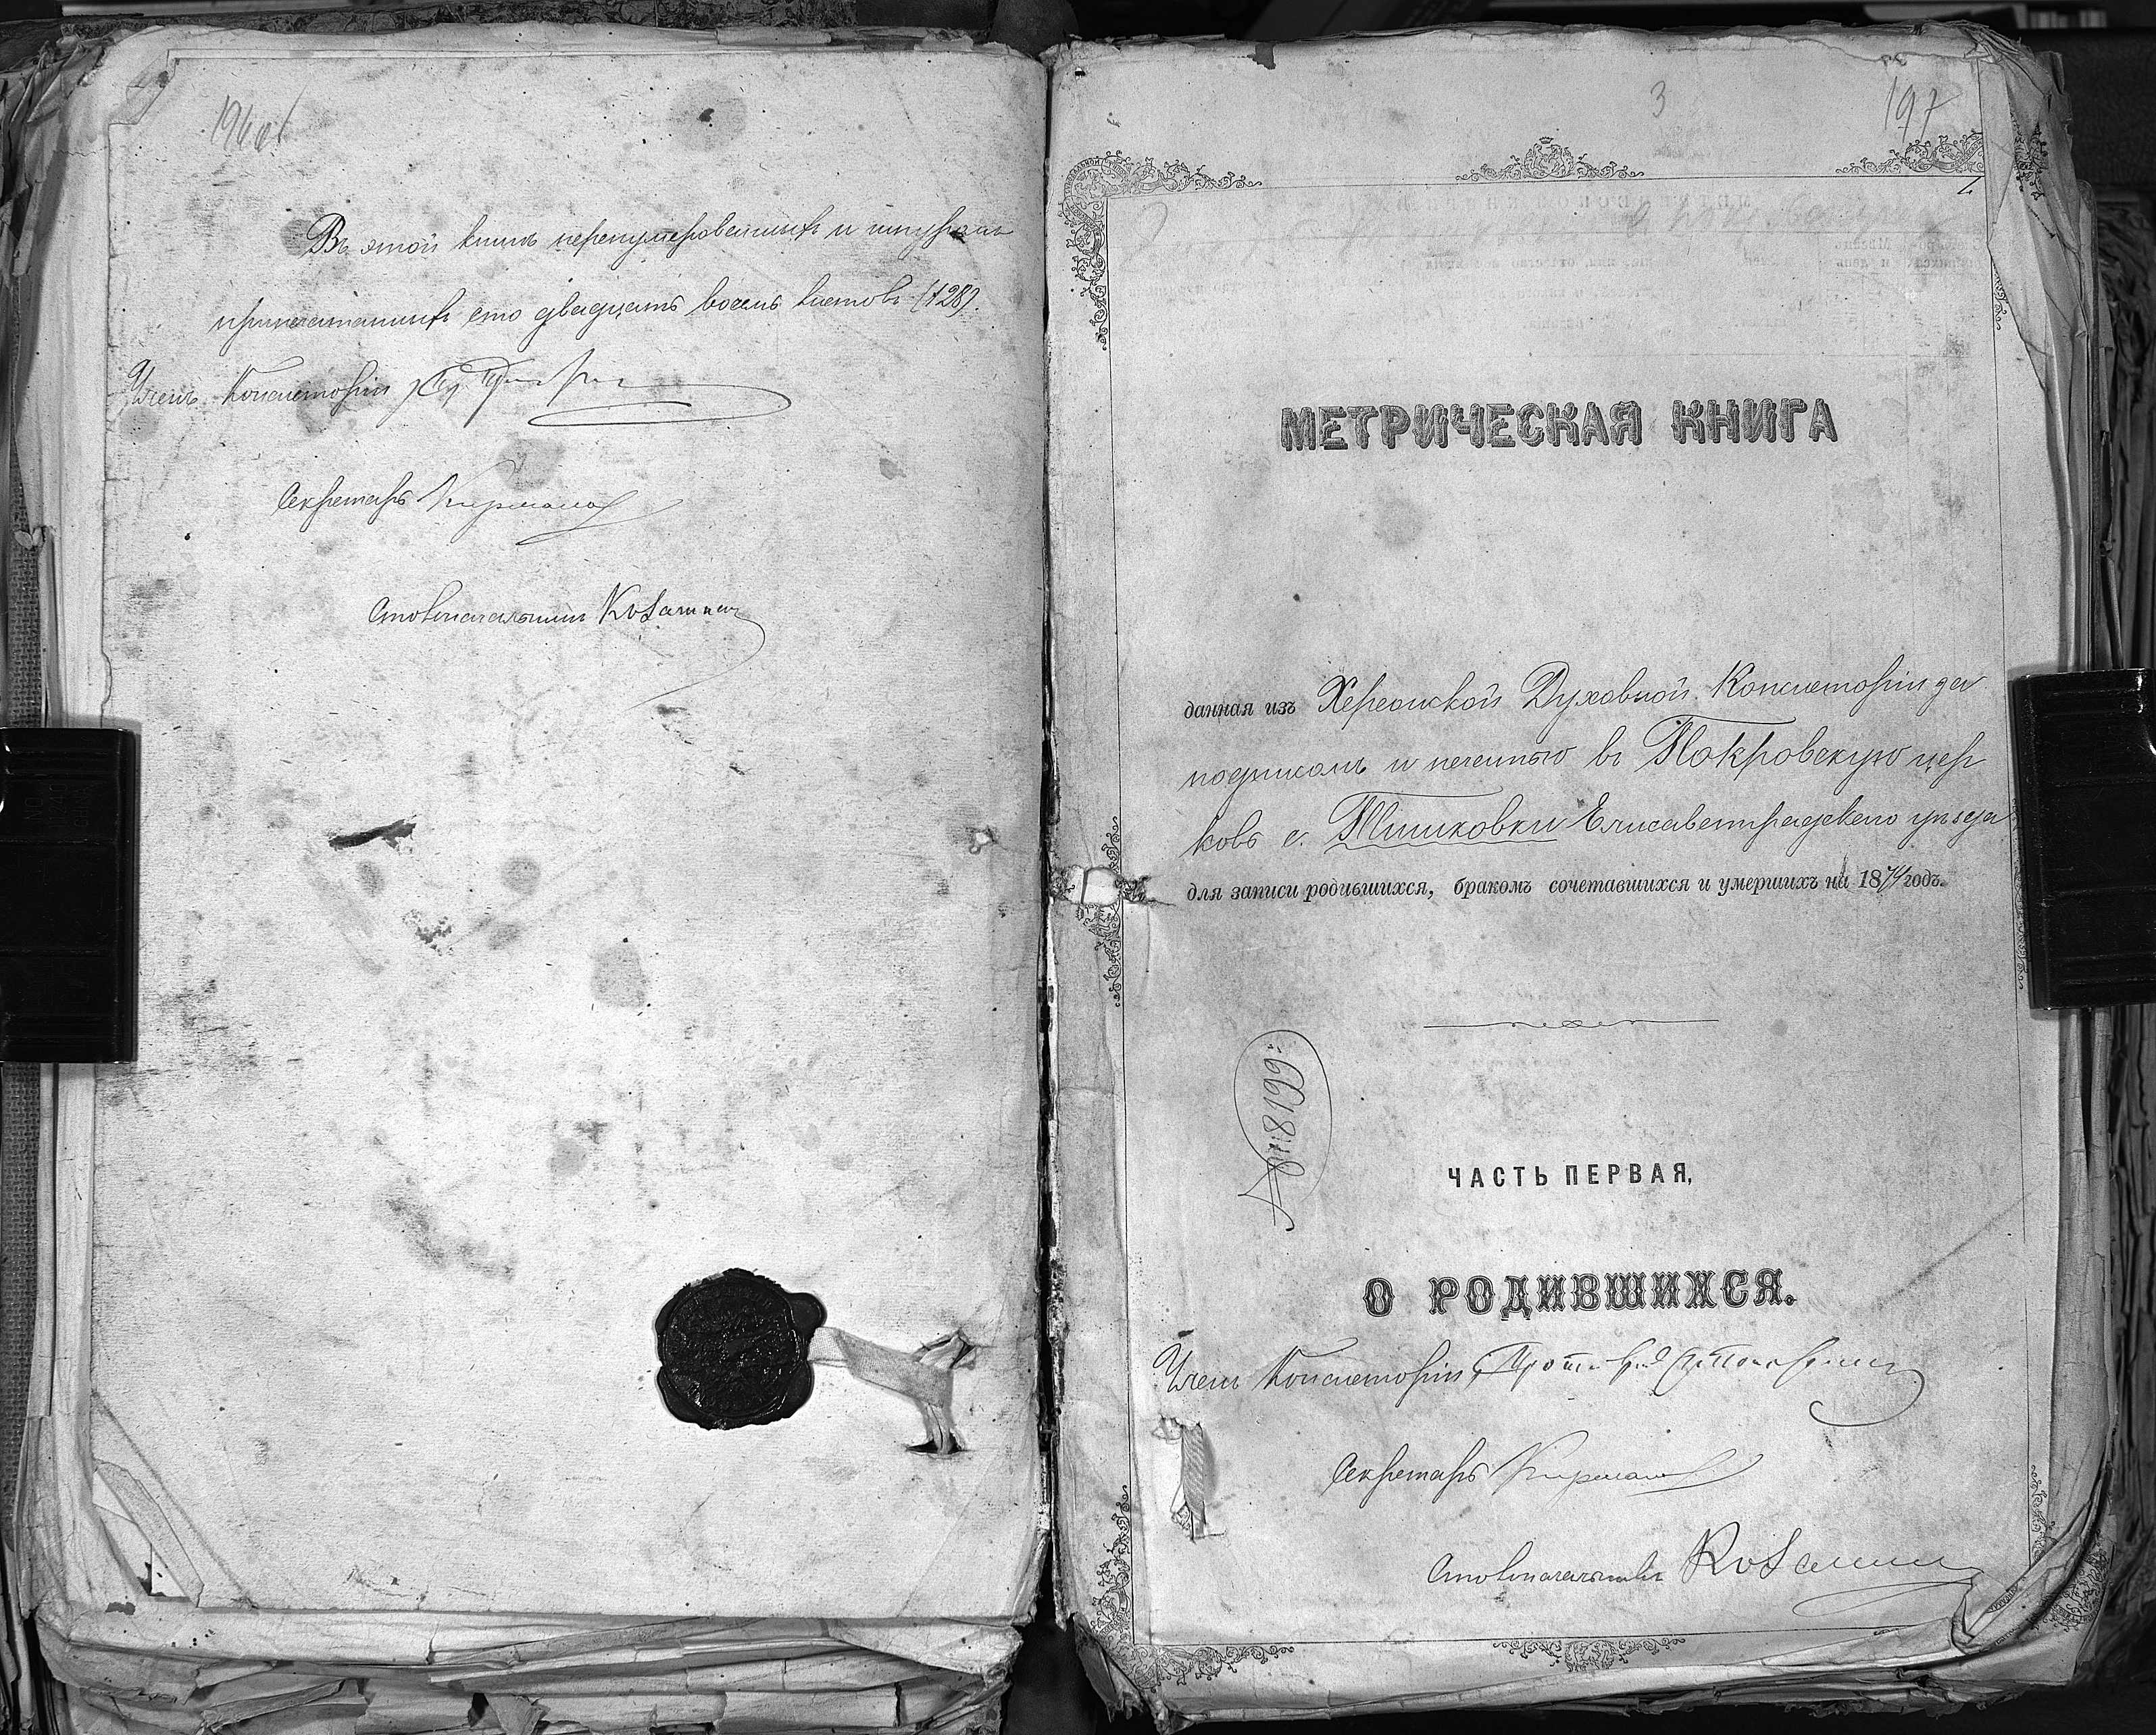 196об
Въ этой книгѣ перенумерованныхъ и шнуромъ
припечатанныхъ сто двадцать восемь листовъ (128).
Членъ Консисторіи
Секретарь
Столоначальникъ
3
197
МЕТРИЧЕСКАЯ КНИГА
данная изъ Херсонской Духовной Консисторіи за
подписомъ и печатью въ Покровскую цер
ковь с. Тишковки Елисаветградскаго уѣзда
для записи родившихся, бракомъ сочетавшихся и умершихъ на 1874 годъ.
ЧАСТЬ ПЕРВАЯ,
О РОДИВШИХСЯ.
Членъ Консисторіи
Секретарь
Столоначальникъ